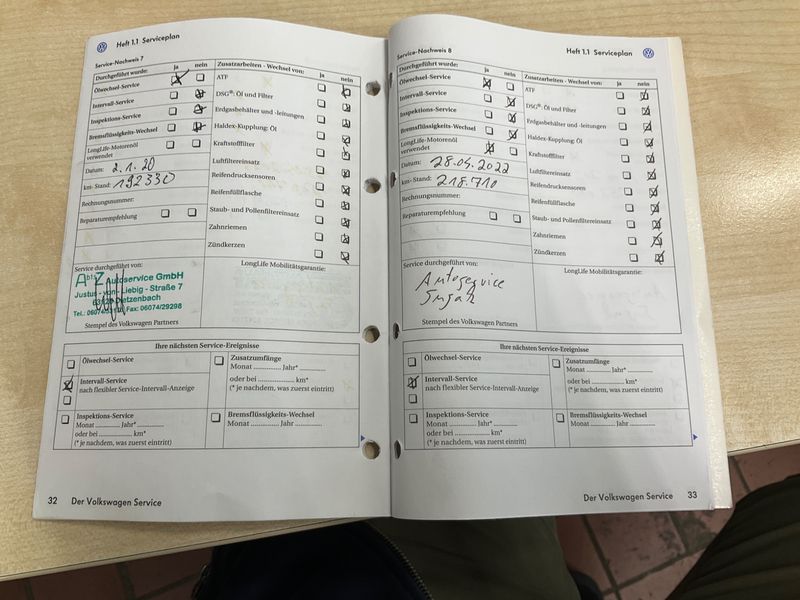 Heft 1.1 Serviceplan
Service-Nachweis 7
Durchgeführt wurde: ja nein
Ölwechsel-Service
Intervall-Service
Inspektions-Service
Bremsflüssigkeits-Wechsel
LongLife-Motorenöl
verwendet
Datum: 2.1.20
km-Stand: 192330
Rechnungsnummer:
Reparaturempfehlung
Zusatzarbeiten - Wechsel von: ja nein
ATF
DSG®: Öl und Filter
Erdgasbehälter und -leitungen
Haldex-Kupplung: Öl
Kraftstofffilter
Luftfiltereinsatz
Reifendrucksensoren
Reifenfüllflasche
Staub- und Pollenfiltereinsatz
Zahnriemen
Zündkerzen
Service durchgeführt von:
Autoservice GmbH
Justus - von - Liebig - Straße 7
Dietzenbach
Fax: 06074/29298
Stempel des Volkswagen Partners
LongLife Mobilitätsgarantie:
Ihre nächsten Service-Ereignisse
Ölwechsel-Service
Intervall-Service
nach flexibler Service-Intervall-Anzeige
Zusatzumfänge
Monat .............. Jahr* .............
oder bei .................. km*
(* je nachdem, was zuerst eintritt)
Inspektions-Service
Monat ............ Jahr* ............
oder bei .................. km*
(* je nachdem, was zuerst eintritt)
Bremsflüssigkeits-Wechsel
Monat .............. Jahr .............
32 Der Volkswagen Service
Service-Nachweis 8
Heft 1.1 Serviceplan
Durchgeführt wurde: ja nein
Ölwechsel-Service
Intervall-Service
Inspektions-Service
Bremsflüssigkeits-Wechsel
LongLife-Motorenöl
verwendet
Datum: 28.04.2022
km-Stand: 218.710
Rechnungsnummer:
Reparaturempfehlung
Zusatzarbeiten - Wechsel von: ja nein
ATF
DSG®: Öl und Filter
Erdgasbehälter und -leitungen
Haldex-Kupplung: Öl
Kraftstofffilter
Luftfiltereinsatz
Reifendrucksensoren
Reifenfüllflasche
Staub- und Pollenfiltereinsatz
Zahnriemen
Zündkerzen
Service durchgeführt von:
Autoservice
Stempel des Volkswagen Partners
LongLife Mobilitätsgarantie:
Ihre nächsten Service-Ereignisse
Ölwechsel-Service
Intervall-Service
nach flexibler Service-Intervall-Anzeige
Zusatzumfänge
Monat .............. Jahr* .............
oder bei .................. km*
(* je nachdem, was zuerst eintritt)
Inspektions-Service
Monat ............ Jahr* ............
oder bei .................. km*
(* je nachdem, was zuerst eintritt)
Bremsflüssigkeits-Wechsel
Monat .............. Jahr .............
Der Volkswagen Service 33